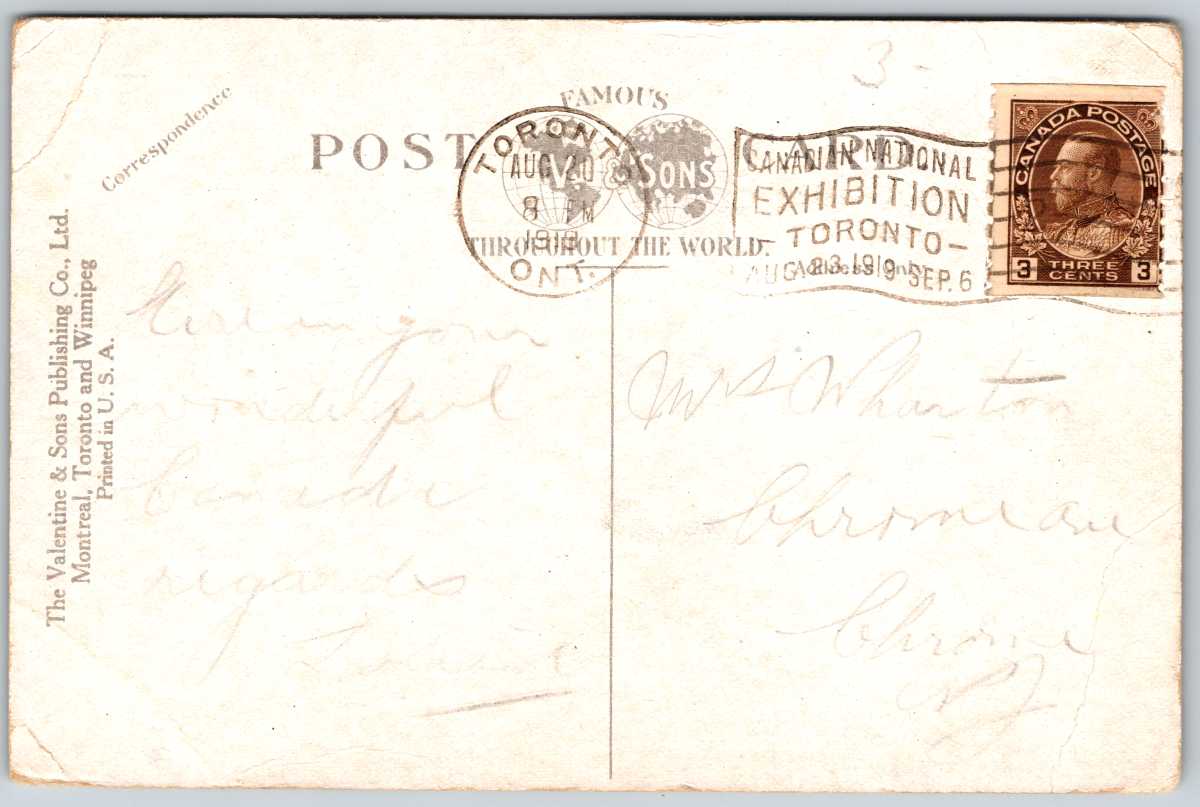 3-
Correspondence
FAMOUS
POST CARD
V & SONS
THROUGHOUT THE WORLD.
TORONTO
AUG 20
8 PM
1919
ONT.
CANADIAN NATIONAL
EXHIBITION
-TORONTO-
AUG. 23 1919 SEP. 6
Address Only
CANADA POSTAGE
3 THREE CENTS 3
The Valentine & Sons Publishing Co., Ltd.
Montreal, Toronto and Winnipeg
Printed in U. S. A.
your
wonderful
Canada
regards
Mrs Wharton
Chrome ave
Chrome
NJ